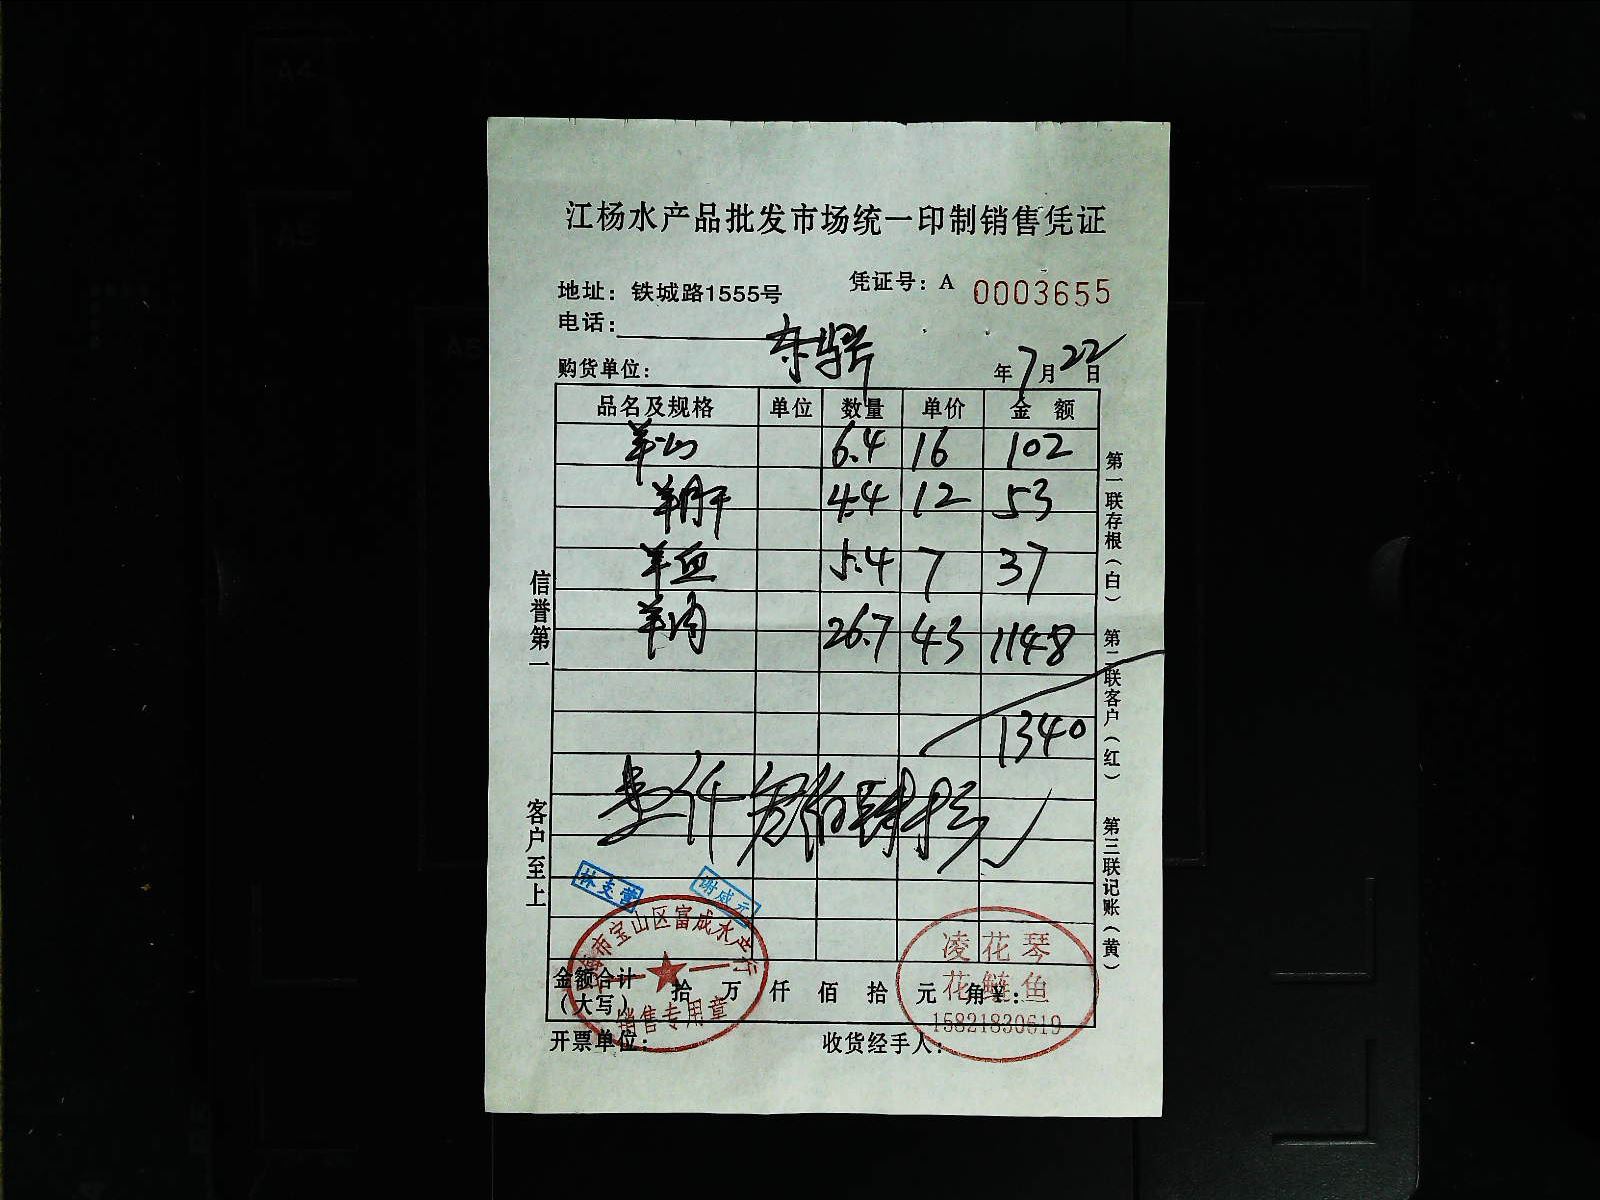 江杨水产品批发市场统一印制销售凭证
地址：铁城路1555号 凭证号：A 0003655
电话：
购货单位： 年7月22日
品名及规格 单位 数量 单价 金 额
羊 6.4 16 102
羊肝 4.4 12 53
羊血 5.4 7 37
羊肉 26.7 43 1148
1340
壹仟叁佰肆拾元
信誉第一
客户至上
第一联存根（白） 第二联客户（红） 第三联记账（黄）
林支营
谢咸元
上海市宝山区富成水产行
销售专用章
凌花琴
花鲢鱼
15821830619
金额合计（大写） 拾 万 仟 佰 拾 元 角 ¥：
开票单位： 收货经手人：